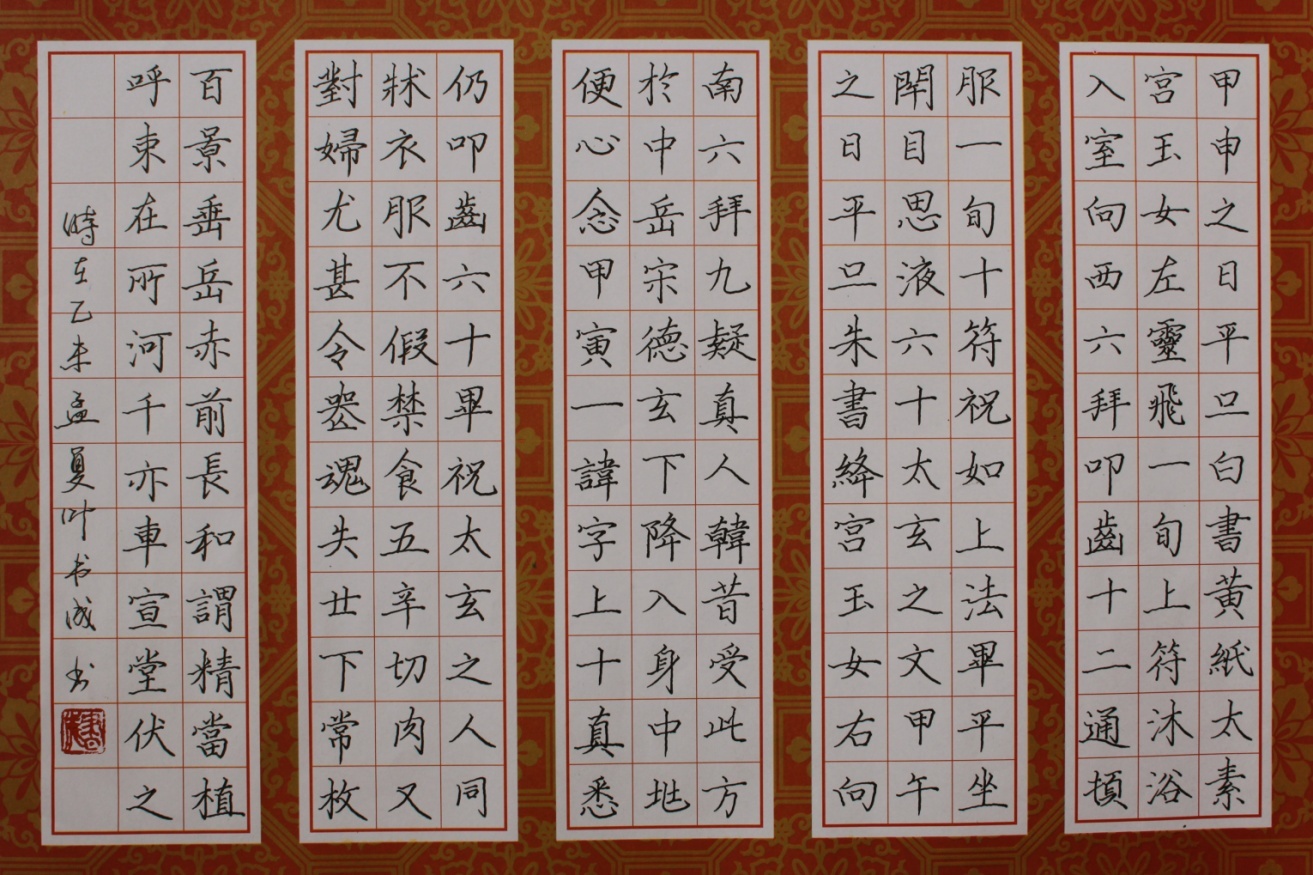 甲申之日平旦白書黃紙太素
宮玉女左靈飛一旬上符沐浴
入室向西六拜叩齒十二通頓
服一旬十符祝如上法畢平坐
閉目思液六十太玄之文甲午
之日平旦朱書絳宮玉女右向
南六拜九疑真人韓昔受此方
於中岳宗德玄下降入身中訖
便心念甲寅一諱字上十真悉
仍叩齒六十畢祝太玄之人同
牀衣服不假禁食五辛切肉又
對婦尤甚令器魂失廿下常枚
百景垂岳赤前長和謂精當植
呼束在所河千亦車宣堂伏之
時在乙未孟夏叶书成书